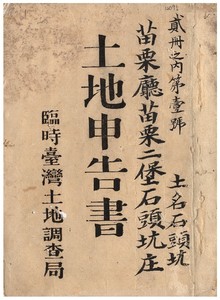 貳冊之內第壹號
土名石頭坑
苗栗廳苗栗二堡石頭坑庄
土地申告書
臨時臺灣土地調查局